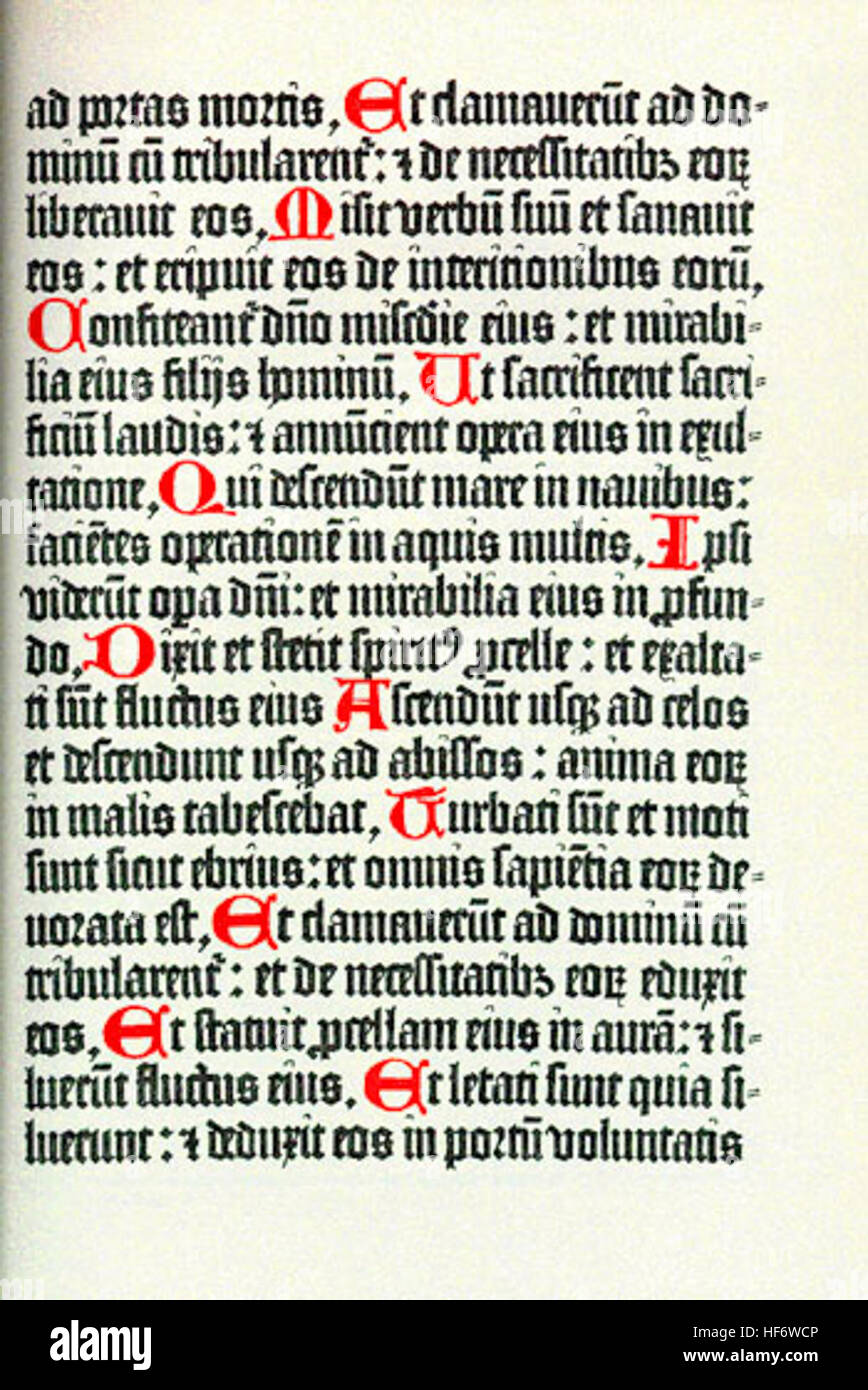 ad portas mortis, Et clamauerūt ad do⸗
minū cū tribularent᷑: ⁊ de necessitatibꝫ eoꝝ
liberauit eos, Misit verbū suū et sanauit
eos : et eripuit eos de interitionibus eorū,
Confiteant᷑ dn̄o misc̄die eius : et mirabi⸗
lia eius filijs hominū, Ut sacrificent sacri⸗
ficiū laudis: ⁊ annūcient opera eius in exul⸗
tatione, Qui descendūt mare in nauibus:
faciētes operationē in aquis multis, Ipsi
viderūt opa dn̄i: et mirabilia eius in ꝓfun⸗
do, Dixit et stetit spiritꝰ ꝓcelle : et exalta⸗
ti sūt fluctus eius Ascendūt usqꝫ ad celos
et descendunt usqꝫ ad abissos : anima eoꝝ
in malis tabescebat, Turbati sūt et moti
sunt sicut ebrius: et omnis sapiētia eoꝝ de⸗
uorata est, Et clamauerūt ad dominū cū
tribularent᷑ : et de necessitatibꝫ eoꝝ eduxit
eos, Et statuit ꝓcellam eius in aurā: ⁊ si⸗
luerūt fluctus eius, Et letati sunt quia si⸗
luerunt : ⁊ deduxit eos in portū voluntatis
alamy
Image ID: HF6WCP
www.alamy.com